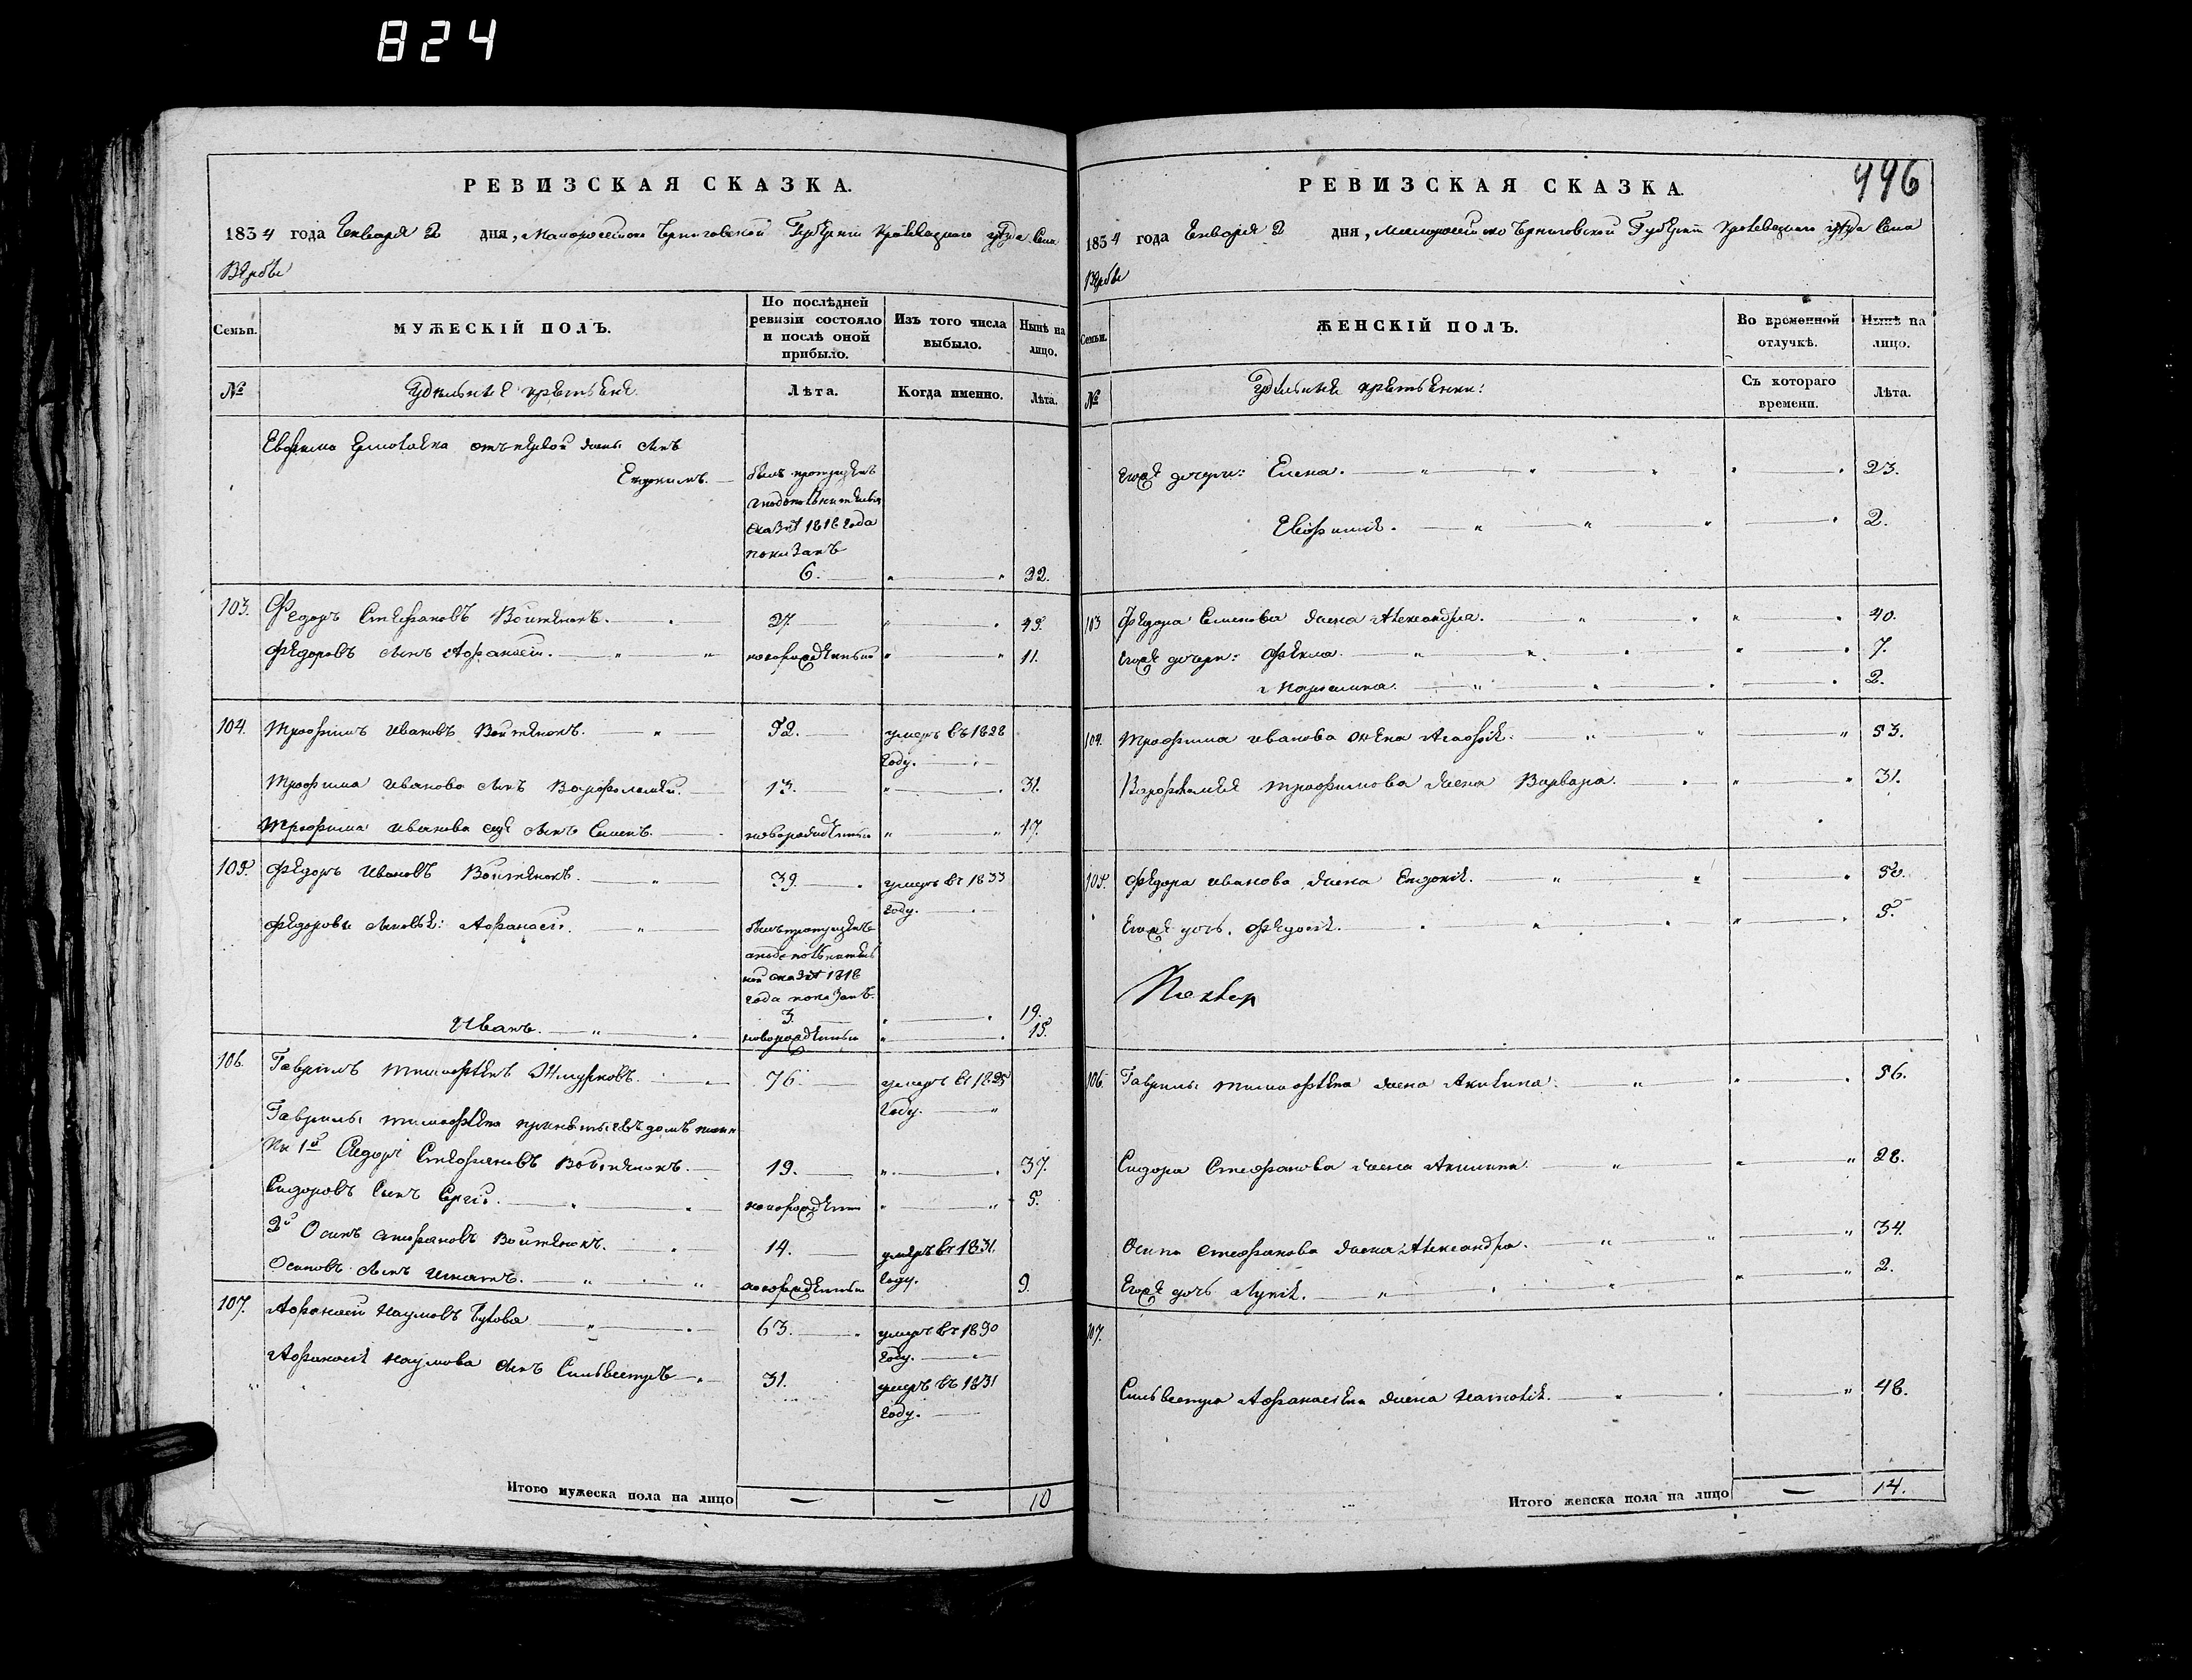 824
РЕВИЗСКАЯ СКАЗКА.
1834 года Генваря 2 дня, Малоросийско Черниговской Губернии Кролевецкаго уѣзда Села
Вербы
Семьи.
МУЖЕСКІЙ ПОЛЪ.
По послѣдней
ревизіи состояло
и послѣ оной
прибыло.
Изъ того числа
выбыло.
Нынѣ на
лицо.
№
Удѣльные крестьяне.
Лѣта.
Когда именно.
Лѣта.
Евфима Ермолаева отъ первой жены сынъ
Евдокимъ.
былъ пропущенъ
сказкѣ 1818 года
показанъ
6. 22.
103. Федоръ Стефановъ Войтенокъ. 27
Федоровъ сынъ Афанасій. новорожденный 11.
104. Трофимъ Ивановъ Войтенокъ. 52. умеръ въ 1828
году.
Трофима Иванова сынъ Варфоломей. 13. 31.
Трофима Иванова сынъ Семенъ. новорожденный 17.
105. Федоръ Ивановъ Войтенокъ. 39. умеръ въ 1833
году.
Федоровы сыновья: Афанасій. былъ пропущенъ
сказкѣ 1818
года показанъ.
3. 19.
Иванъ. новорожденный 15.
106. Гавріилъ Тимофѣевъ 76. умеръ въ 1825
году.
Гаврилы Тимофѣева приняты въ домъ
1й Сидоръ Стефановъ Войтенокъ. 19. 37.
Сидоровъ сынъ Сергій. новорожденный 5.
2й Осипъ Стефановъ Войтенокъ. 14. умеръ въ 1831.
году.
Осиповъ сынъ Игнатъ. новорожденный 9.
107. Афанасій Наумовъ 63. умеръ въ 1830
году.
Афанасія Наумова сынъ Сильвестръ 31. умеръ въ 1831
году.
Итого мужеска пола на лицо — — 10
РЕВИЗСКАЯ СКАЗКА.
496
1834 года Генваря 2 дня, Малоросийско Черниговской Губернии Кролевецкаго уѣзда Села
Вербы
Семьи.
ЖЕНСКІЙ ПОЛЪ.
Во временной
отлучкѣ.
Нынѣ на
лицо.
№
Удѣльные крестьянки:
Съ котораго
времени.
Лѣта.
Егоже дочери: Елена. 23.
Евфимія. 2.
103 Федора жена Александра. 40.
Егоже дочери: Фекла. 7.
Марина. 2.
104. Трофима Иванова жена Агафія. 53.
Варфоломея Трофимова жена Варвара. 31.
105. Федора Иванова жена Евдокія.
Егоже дочь Федосія. 5.
106. Гаврилы Тимофѣева жена Акилина. 56.
Сидора Стефанова жена Акилина. 28.
Осипа Стефанова жена Александра. 34.
Егоже дочь Лукія. 2.
107.
Сильвестра Афанасіева жена Наталія. 48.
Итого женска пола на лицо — 14.